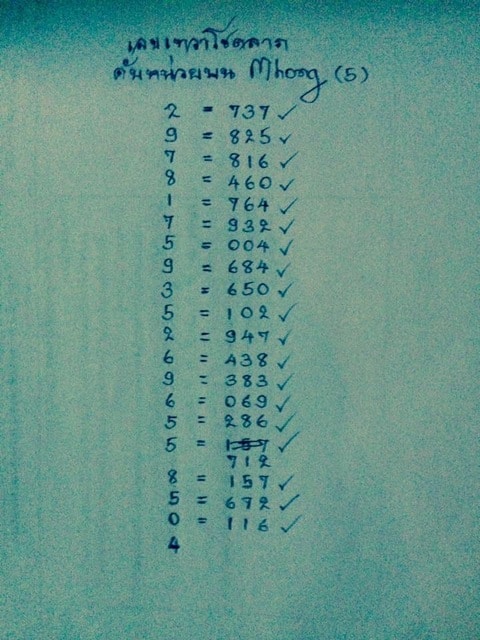 เลขเทวาโชคลาภ
ดับหน่วยบน Mhoog (5)
2 = 737 ✓
9 = 825 ✓
7 = 816 ✓
8 = 460 ✓
1 = 764 ✓
7 = 932 ✓
5 = 004 ✓
9 = 684 ✓
3 = 650 ✓
5 = 102 ✓
2 = 947 ✓
6 = 438 ✓
9 = 383 ✓
6 = 069 ✓
5 = 286 ✓
5 = 157 ✓
712
8 = 157 ✓
5 = 672 ✓
0 = 116 ✓
4